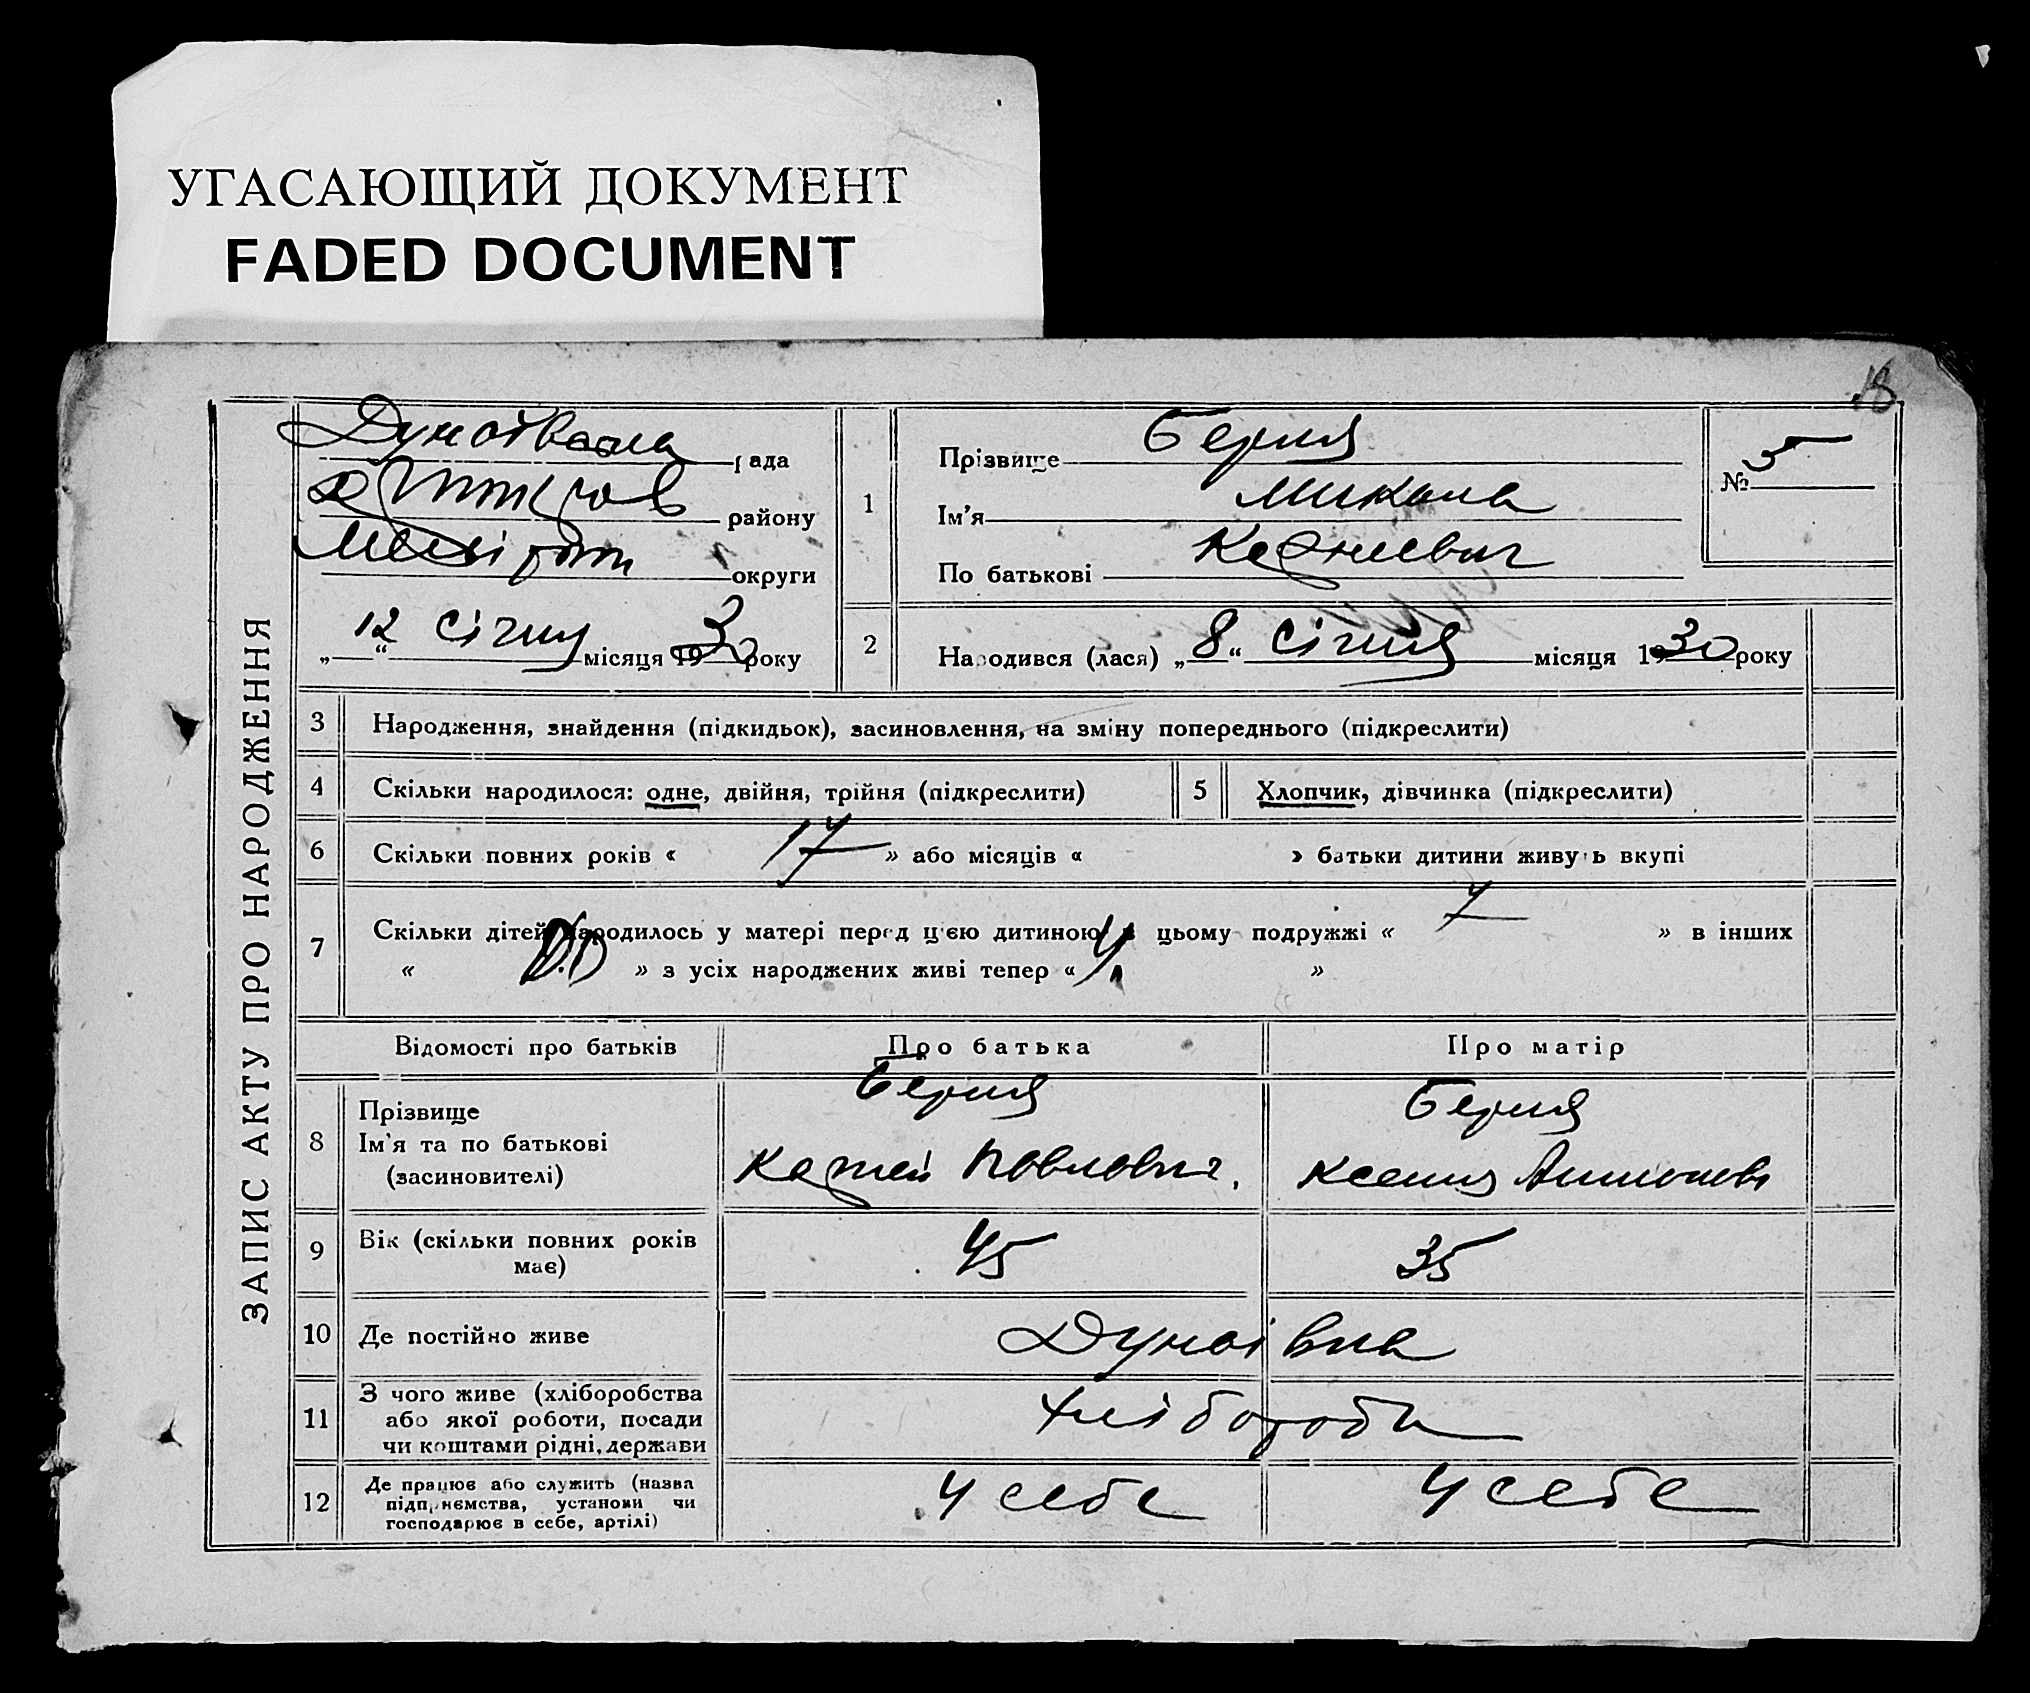 УГАСАЮЩИЙ ДОКУМЕНТ
FADED DOCUMENT
18
ЗАПИС АКТУ ПРО НАРОДЖЕННЯ
рада
району
округи
„12“ Січня місяця 1930 року
1
Прізвище
Ім'я Микола
По батькові
№ 5
2
Народився (лася) „8“ Січня місяця 1930 року
3 Народження, знайдення (підкидьок), засиновлення, на зміну попереднього (підкреслити)
4 Скільки народилося: одне, двійня, трійня (підкреслити)
5 Хлопчик, дівчинка (підкреслити)
6 Скільки повних років « 17 » або місяців « » батьки дитини живуть вкупі
7 Скільки дітей народилось у матері перед цією дитиною в цьому подружжі « 7 » в інших
« » з усіх народжених живі тепер « 4 »
Відомості про батьків Про батька Про матір
8 Прізвище
Ім'я та по батькові
(засиновителі)
Павлович.
Ксения
9 Вік (скільки повних років
має)
45 35
10 Де постійно живе Дунаївка
11 З чого живе (хліборобства
або якої роботи, посади
чи коштами рідні, держави
Хлібороби
12 Де працює або служить (назва
підприємства, установи чи
господарює в себе, артілі)
У себе У себе